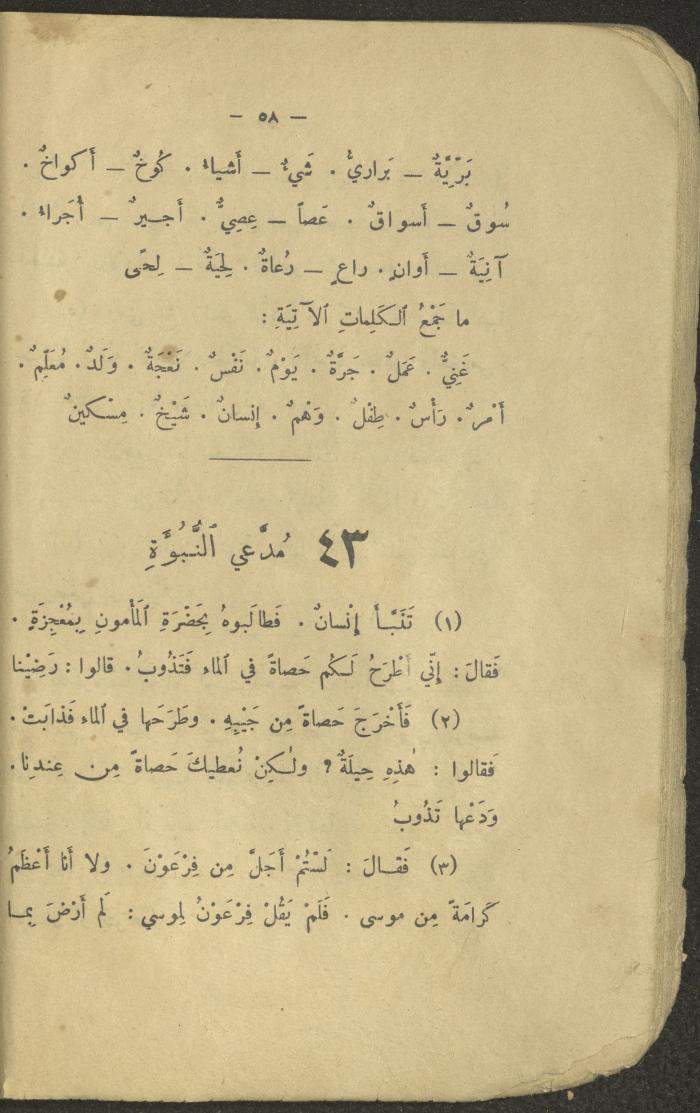 — ٥٨ —
بَرِّيَّةٌ — بَراريُّ . شَيءٌ — أَشياءُ . كُوخٌ — أَكواخٌ .
سُوقٌ — أَسواقٌ . عَصاً — عِصِيٌّ . أَجـيرٌ — أُجَراءُ .
آنِيَةٌ — أَوانٍ . راعٍ — رُعاةٌ . لِحْيَةٌ — لِحًى
ما جَمْعُ ٱلـكَلِماتِ ٱلآتِيَةِ :
غَنِيٌّ . عَمَلٌ . جَرَّةٌ . يَوْمٌ . نَفْسٌ . نَعْجَةٌ . وَلَدٌ . مُعَلِّمٌ .
أَمْرٌ . رَأْسٌ . طِفْلٌ . وَهْمٌ . إِنسانٌ . شَيْخٌ . مِسْكينٌ
٤٣ مُدَّعي ٱلنُّـبُوَّةِ
(١) تَنَبَّـأَ إِنْسانٌ . فَطالَبوهُ بِحَضْرَةِ ٱلمَأْمونِ بِمُعْجِزَةٍ .
فَقالَ : إِنّي أَطْرَحُ لَـكُم حَصاةً في ٱلماء فَتَذُوبُ . قالوا : رَضِيْنا
(٢) فَأَخْرَجَ حَصاةً مِن جَيْبِهِ . وطَرَحَها في ٱلماء فَذابَتْ .
فَقالوا : هٰذِهِ حِيلَةٌ ? ولٰـكِنْ نُعطيكَ حَصاةً مِن عِندِنا .
وَدَعْها تَذُوبُ
(٣) فَقـالَ : لَسْتُمْ أَجَلَّ مِن فِرْعَوْنَ . ولا أَنا أَعْظَمُ
كَرامَةً مِن موسى . فَلَمْ يَقُلْ فِرْعَوْنُ لِموسي : لَم أَرْضَ بِمـا